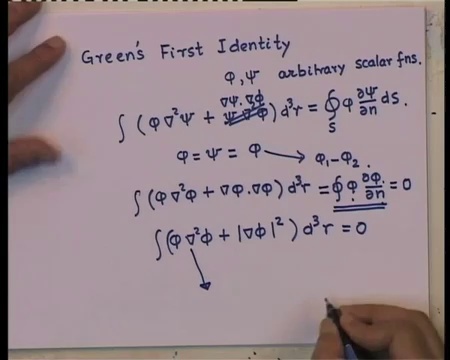 Green's First Identity
φ, ψ arbitrary scalar fns.
∇ψ·∇φ
∫ (φ∇²ψ + ) d³r = ∮ₛ φ ∂ψ/∂n dS.
φ = ψ = φ → φ₁-φ₂.
∫ (φ∇²φ + ∇φ.∇φ) d³r = ∮ φ ∂φ/∂n = 0
∫(φ∇²φ + |∇φ|²) d³r = 0